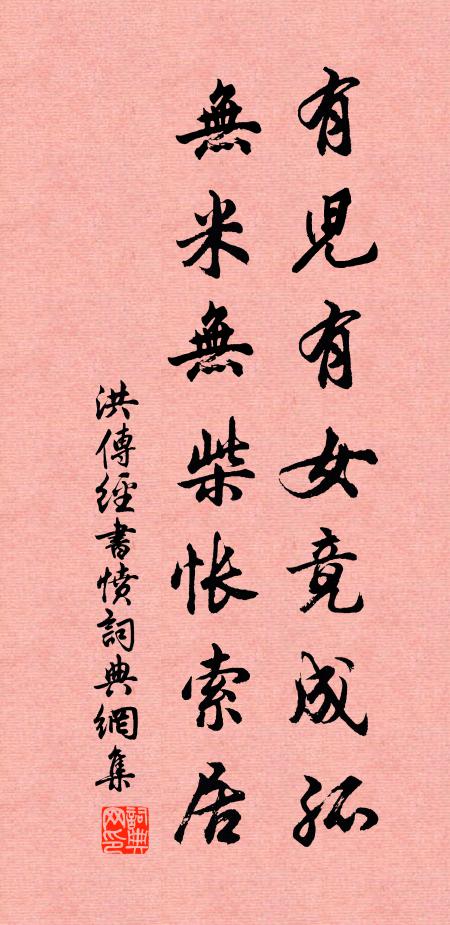 有児有女竟成孤
無米無柴悵索居
洪傳經書憤詞典網集
詞典网印